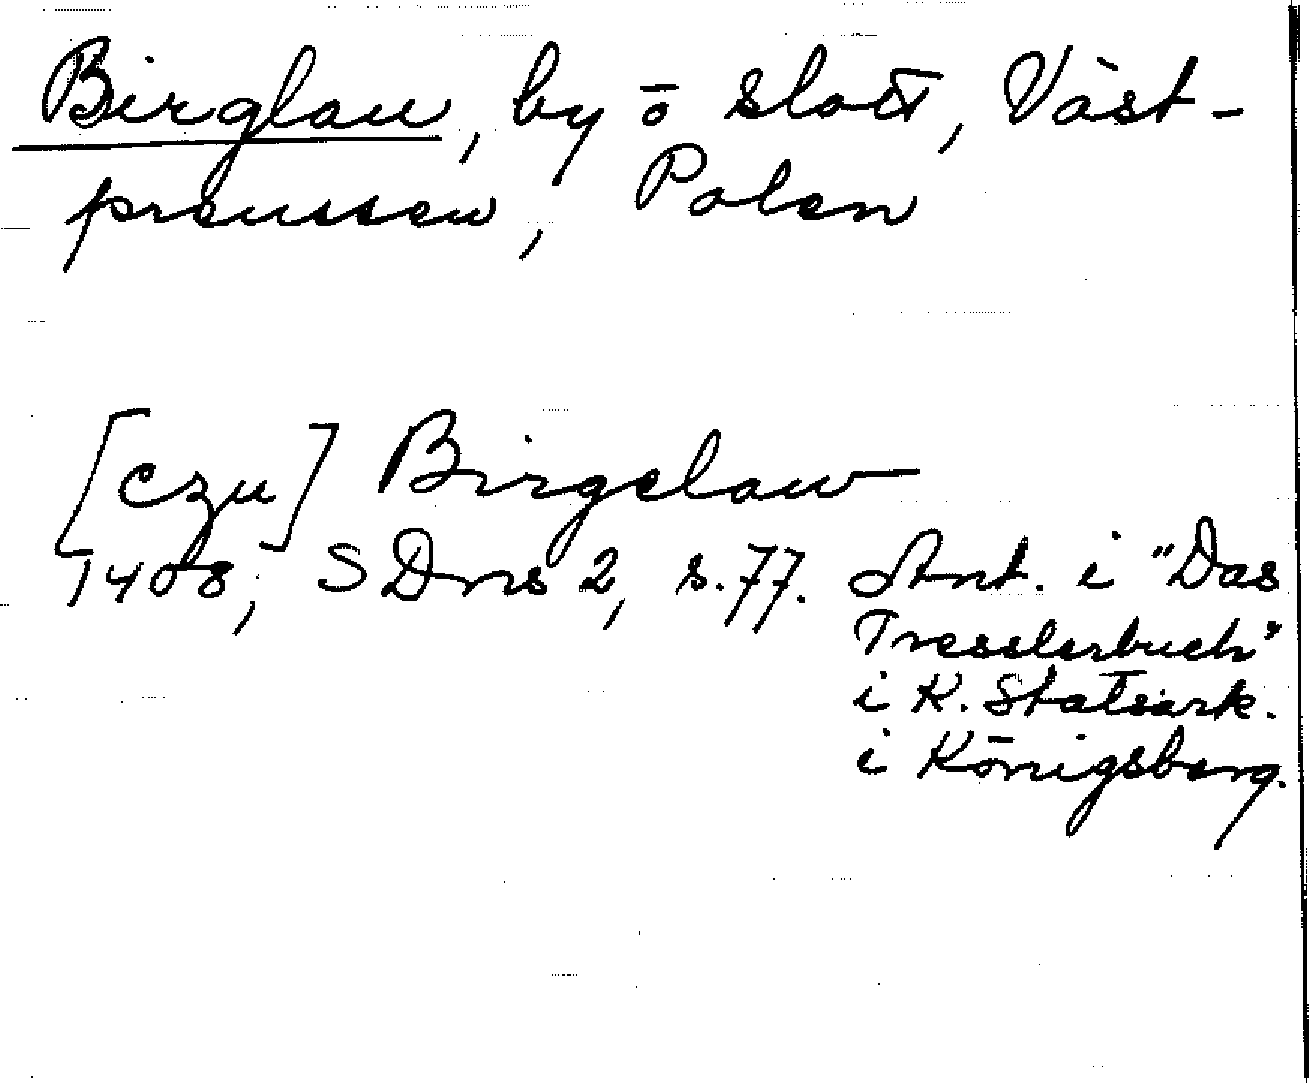 Birglau, by o slott, Väst-
preussen, Polen
[czu] Birgelaw
1408, SDns 2, s. 77. Ant. i "Das
Tresslerbuch"
i K. Statsark.
i Königsberg.